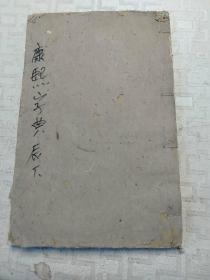 康熙字典辰下